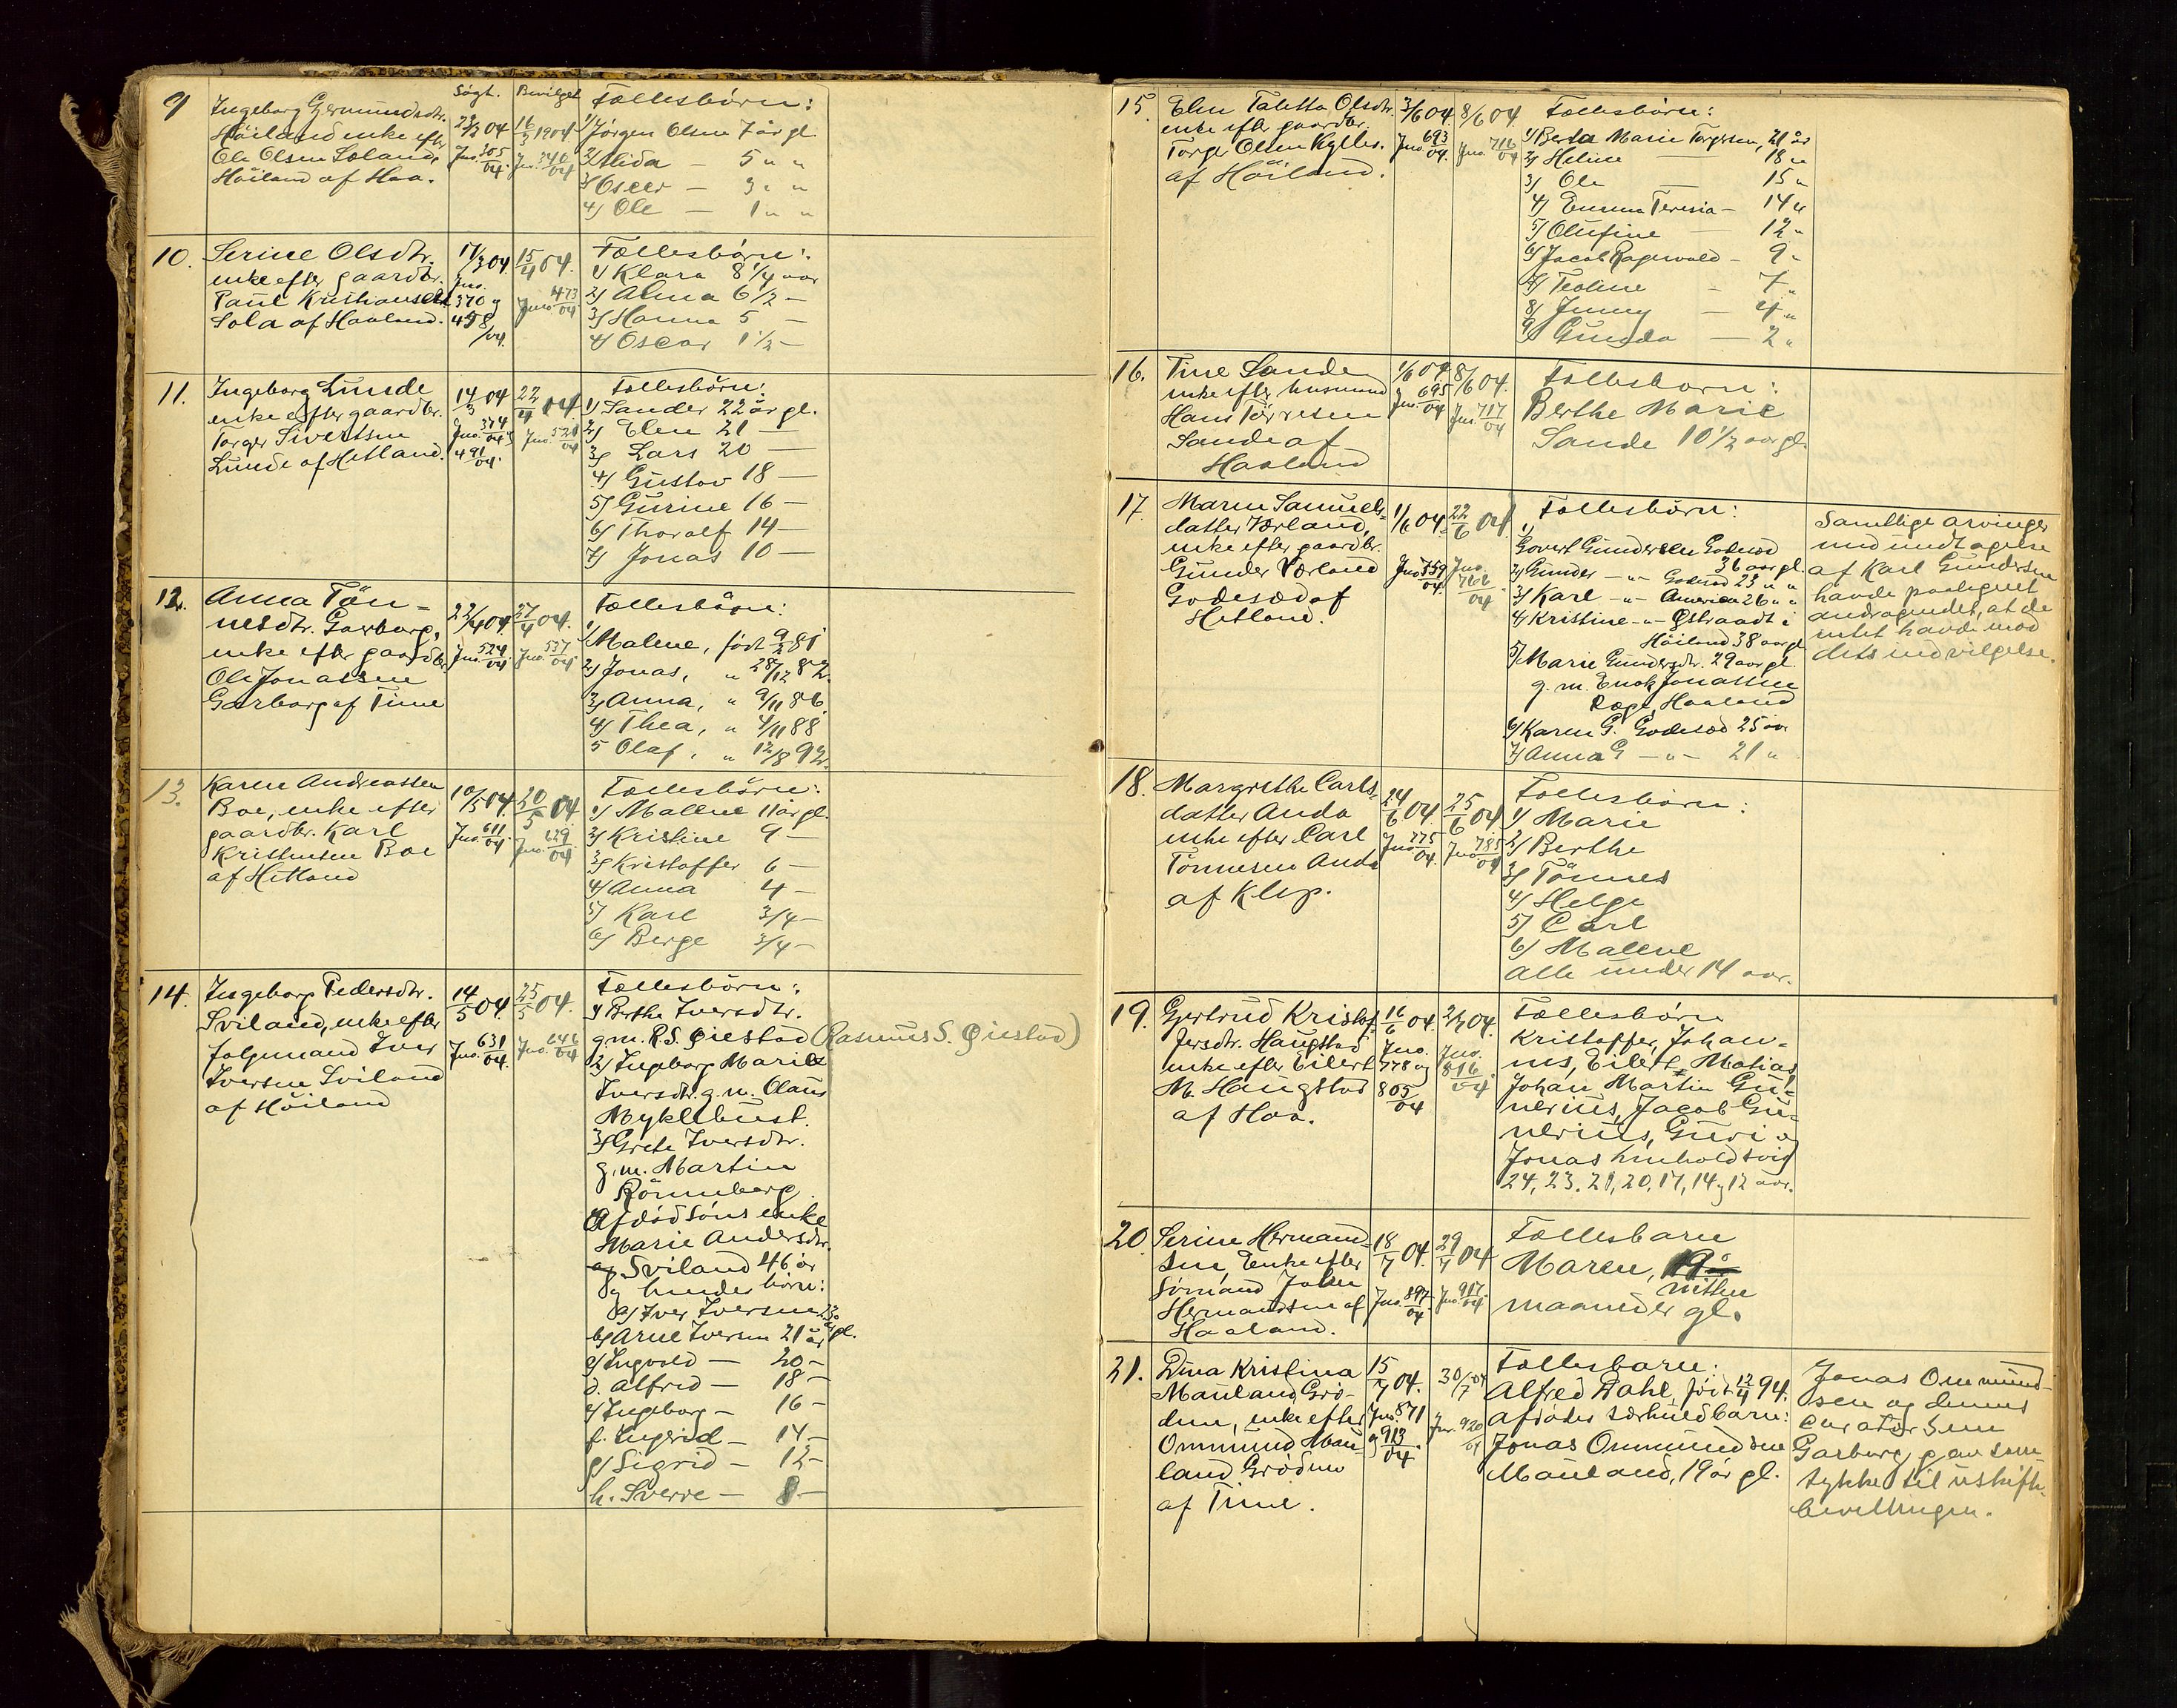 Søgt. Bevilget
9
Ingeborg Germundsdtr.
Høiland enke efter
Ole Olsen Søland,
Høiland af Haa.
04
Jno. 305/04.
16/3 1904
Jno. 340/04
Fællesbørn:
1/ Jørgen Olsen 7 år gl.
2/ Alida — 5 " "
3/ Oscar — 3 " "
4/ Ole — 1 " "
10.
Serine Olsdtr.
enke efter gaardbr.
Paul Kristiansen
Sola af Haaland.
17/3 04.
Jno.
370 og
458/04.
15/4 04.
Jno. 473/04
Fællesbørn:
1/ Klara 8 1/4 aar
2/ Alma 6 1/2 —
3/ Hanna 5 —
4/ Oscar 1 1/2 —
11.
Ingeborg Lunde
enke efter gaardbr.
Torger Sivertsen
Lunde af Hetland.
14/3 04
Jno. 374/04 og
491/04.
22/4 04
Jno. 521/04
Fællesbørn:
1/ Sander 22 år gl.
2/ Elen 21 —
3/ Lars 20 —
4/ Gustav 18 —
5/ Gurine 16 —
6/ Thoralf 14 —
7/ Jonas 10 —
12.
Anna Tøn-
nesdtr. Garborg,
enke efter gaardbr.
Ole Jonassen
Garborg af Time
22/4 04.
Jno. 524/04.
27/4 04.
Jno. 537/04
Fællesbørn:
1/ Malene, født 9/2 81
2/ Jonas, " 28/12 82.
3/ Anna, " 9/11 86.
4/ Thea, " 4/11 88
5 Olaf, " 12/8 92.
13.
Karen Andreassen
Boe, enke efter
gaardbr. Karl
Kristensen Boe
af Hetland
10/5 04.
Jno. 611/04.
20/5 04
Jno. 629/04
Fællesbørn:
1/ Mallene 11 år gl.
2/ Kristine 9 —
3/ Kristoffer 6 —
4/ Anna 4 —
5/ Karl 3/4 —
6/ Berge 3/4 —
14.
Ingeborg Pedersdtr.
Sviland, enke efter
følgemand Iver
Iversen Sviland
af Høiland
14/5 04.
Jno. 631/04.
25/5 04.
Jno. 646/04
Fællesbørn:
1/ Berthe Iversdtr.
g.m. R.S. Øiestad (Rasmus S. Øiestad)
2/ Ingeborg Marie
Iversdtr. g.m. Claus
Myklebust.
3/ Grete Iversdtr.
g.m. Martin
Rønneberg.
Afdød søns enke
Marie Andersdtr.
Sviland 46 år
og hendes børn:
a/ Iver Iversen 23
b/ Arne Iversen 21 år gl.
c/ Ingvald — 20 —
d. Alfred — 18 —
e/ Ingeborg — 16 —
f. Ingerid — 14 —
g/ Sigrid — 12 —
h. Sverre — 8 —
15.
Elen Taletta Olsdtr.
enke efter gaardbr.
Torger Olsen Kylles.
af Høiland.
3/6 04.
Jno. 693/04.
8/6 04
Jno. 716/04
Fællesbørn:
1/ Berta Marie Torgersen, 21 år
2/ Heline — 18 "
3/ Ole — 15 "
4/ Emma Teresia — 14 "
5/ Olufine — 12 "
6/ Jacob Ragnvald — 9 "
7/ Teoline — 7 "
8/ Jenny — 4 "
9/ Gunda — 2 "
16.
Tine Sande
enke efter husmand
Hans Tørresen
Sande af
Haaland
1/6 04
Jno. 695/04
8/6 04.
Jno. 717/04
Fællesbarn:
Berthe Marie
Sande 10 1/2 aar gl.
17.
Maren Samuels-
datter Værland,
enke efter gaardbr.
Gunder Værland
Godesæd af
Hetland.
1/6 04.
Jno. 759/04
22/6 04
Jno.
766/04
Fællesbørn:
1/
Govert Gundersen Godesæd
36 aar gl.
2/ Gunder — " — Godesæd 23 " "
3/ Karl — " — America 26 " "
4/ Kristine — " — Østraadt i
Høiland 38 aar gl.
5/ Marie Gundersdtr. 29 aar gl.
g.m. Enok Jonassen
Røge, Haaland
6/ Karen G. Godesæd 25 aar
7/ Anna G — " — 21 "
Samtlige arvinger
med undtagelse
af Karl Gundersen
havde paategnet
andragendet, at de
intet havde mod
dets indvilgelse.
18.
Margrethe Carls-
datter Anda
enke efter Carl
Tønnesen Anda
af Klep.
24/6 04.
Jno. 775/04.
25/6 04
Jno. 785/04
Fællesbørn:
1/ Marie
2/ Berthe
3/ Tønnes
4/ Helge
5/ Carl
6/ Malene
Alle under 14 aar.
19.
Gjertrud Kristof-
fersdtr. Haugstad
enke efter Eilert
M. Haugstad
af Haa.
16/6 04
Jno.
778 og
805/04
2/7 04.
Jno.
816/04
Fællesbørn
Kristoffer, Johan-
nes, Eilert, Matias,
Johan Martin Gu-
nerius, Jacob Gu-
nerius, Guri og
Jonas
24, 23, 21, 20, 17, 14 og 12 aar.
20.
Serine Hermand-
sen, Enke efter
Sømand John
Hermandsen af
Haaland.
18/7 04.
Jno. 897/04
29/7 04
Jno. 917/04
Fællesbarn
Maren, 19
nitten
maaneder gl.
21.
Dina Kristina
Mauland Grø-
dem, enke efter
Ommund Mau-
land Grødem
af Time.
15/7 04.
Jno. 871
og 913/04
30/7 04
Jno. 920/04
Fællesbarn:
Alfred Dahl, født 12/4 94.
Afdødes særkuldbarn:
Jonas Ommundsen
Mauland, 19 år gl.
Jonas Ommund-
sen og dennes
curator Sven
Garborg gav sam-
tykke til uskifte-
bevillingen.